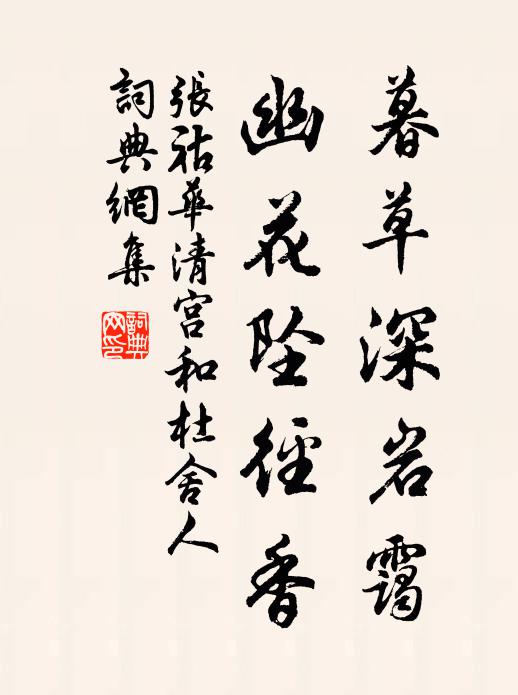 暮草深岩靄
幽花墜徑香
張祜華清宮和杜舍人
詞典網集
詞典網印